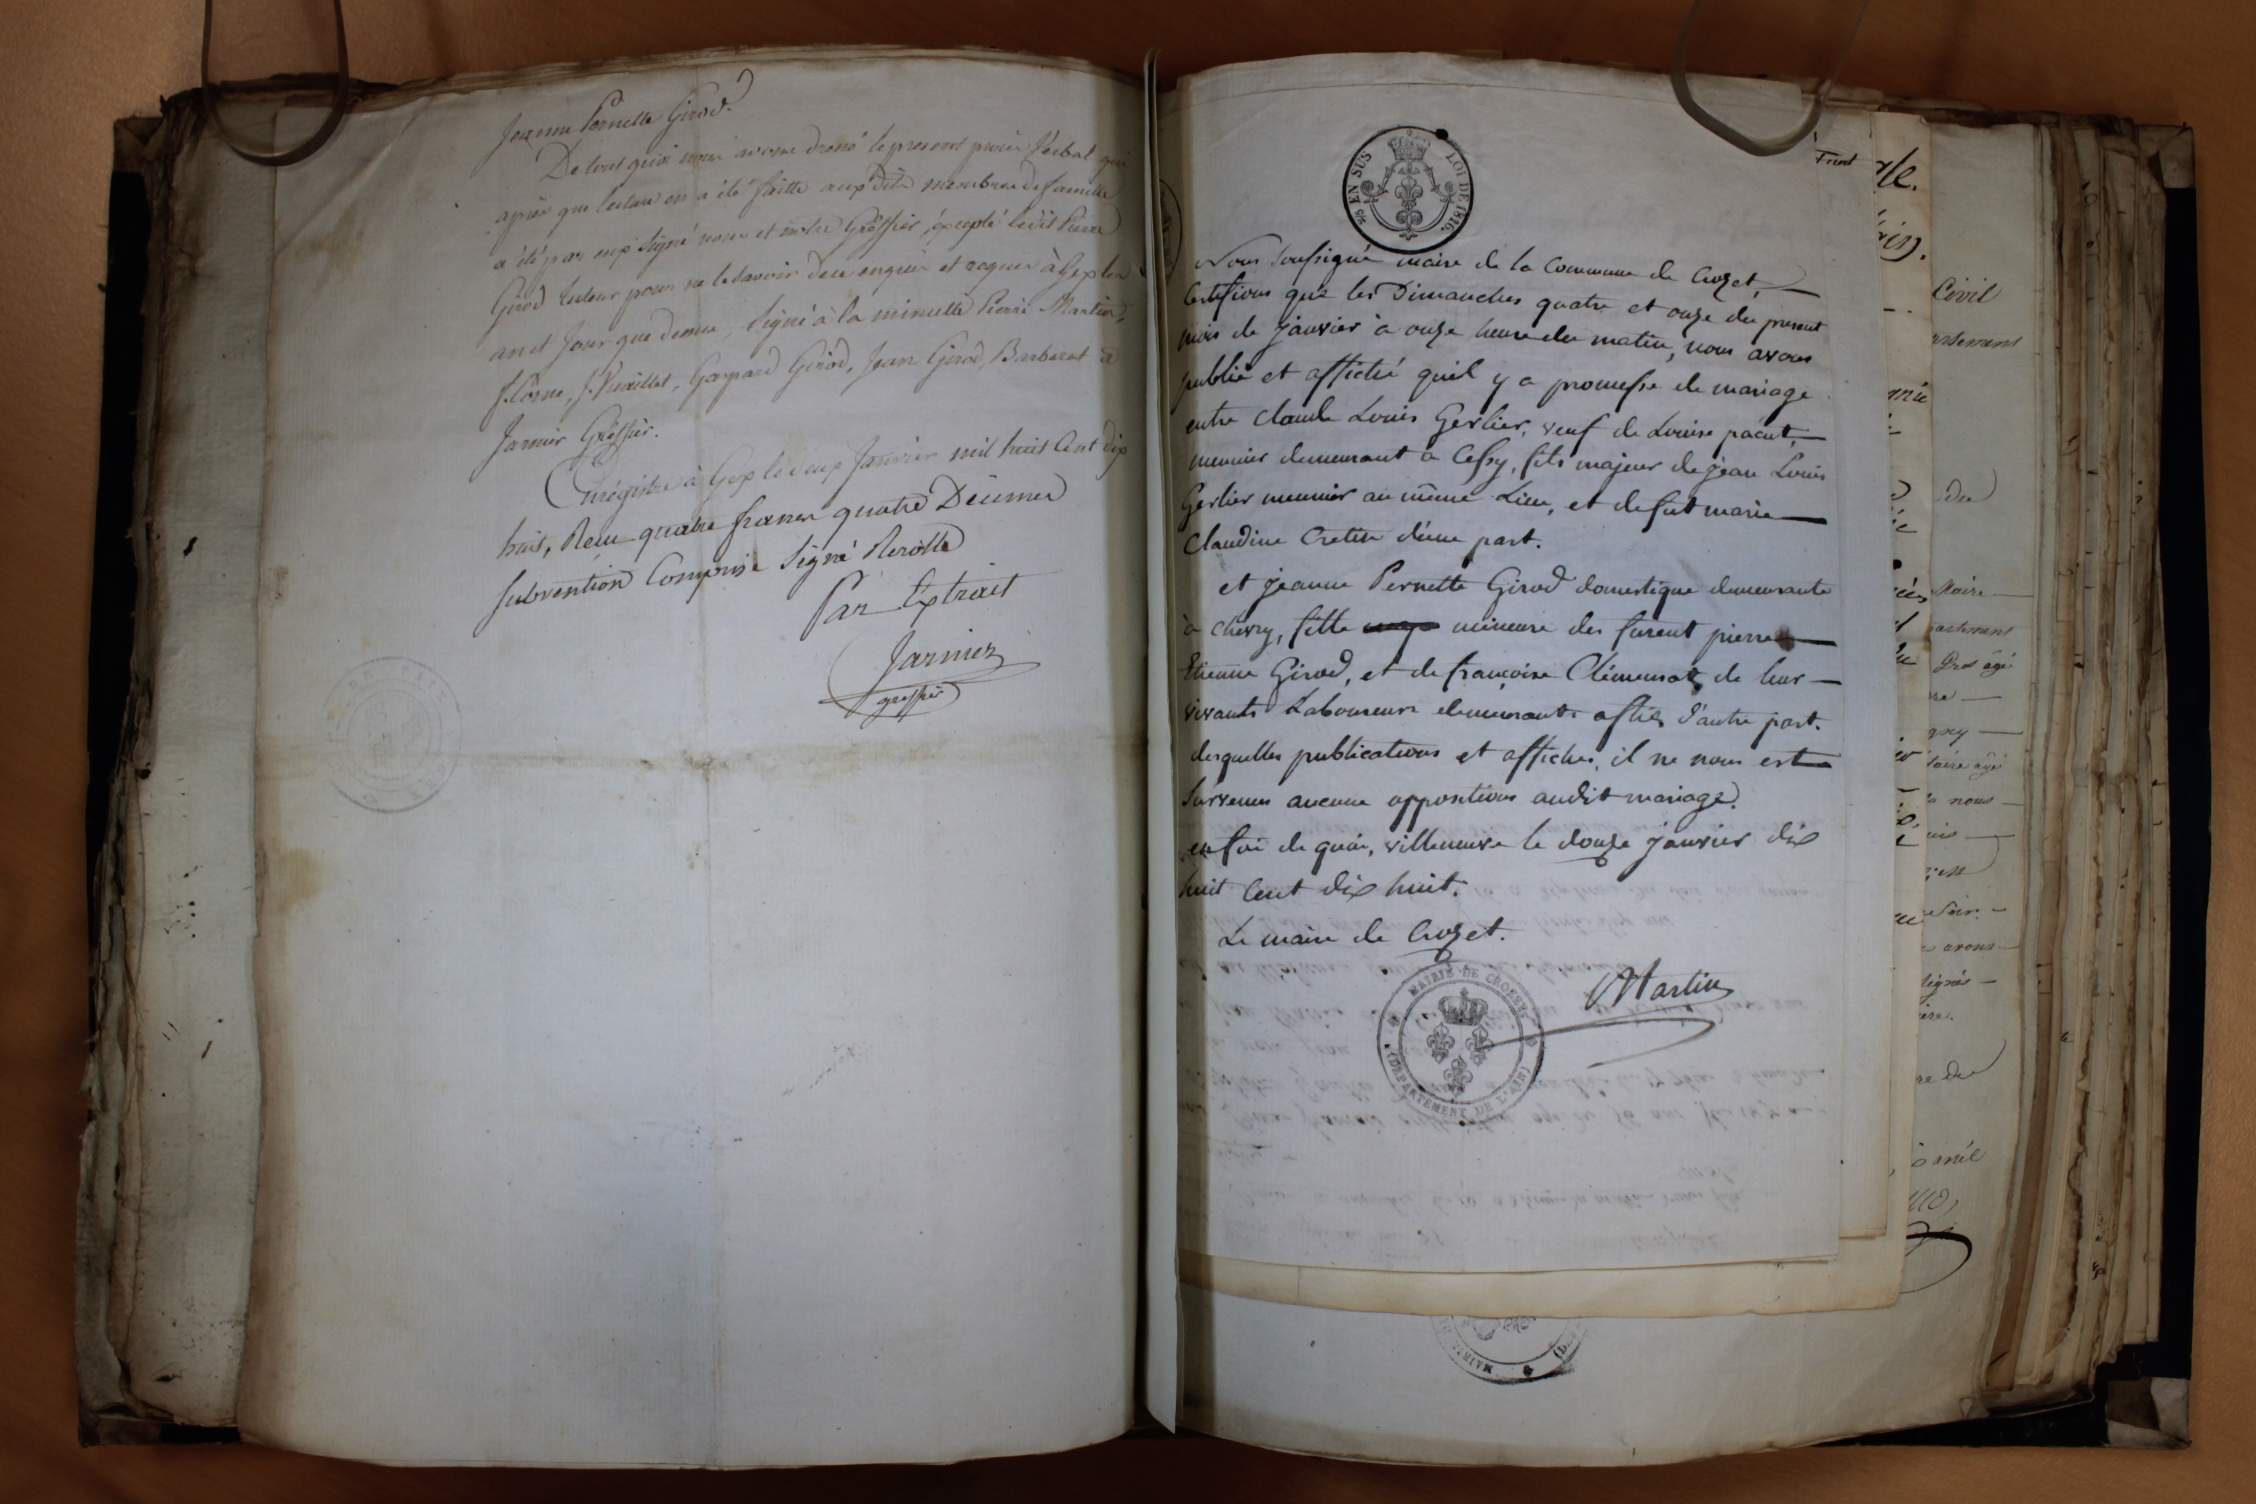 Jeanne Pernette Girod.
De tout quoi nous avons dressé le present procès Verbal qui
après que lecture en a été faitte aux dits membres de famille
a été par eux signé nous et notre Greffier, excepté ledit Pierre
Girod tuteur pour ne le savoir de ce enquis et requis à Gex les
an et jour que dessus, signé à la minutte Pierre Martin,
f. Corne, J. Vuaillet, Gaspard Girod, Jean Girod, Barberat &
Jarnier Greffier.
Enregistré à Gex le deux Janvier mil huit Cent dix
huit, Reçu quatre francs quatre Décimes
subvention Comprise signé Verolle
Par Extrait
Jarnier
greffier
EN SUS LOI DE 1816.
Nous soussigné maire de la Commune de Crozet,
Certifions que les Dimanches quatre et onze du present
mois de janvier à onze heure du matin, nous avons
publié et affiché quil y a promesse de mariage
entre Claude Louis Gerlier, veuf de Louise pacut,
meunier demeurant a Cessy, fils majeur de jean Louis
Gerlier meunier au même Lieu, et de fut marie
Claudine Cretin d'une part.
et jeanne Pernette Girod domestique demeurante
à chevry, fille mineure des furent pierre
Etienne Girod, et de françoise Clémensat de leur
vivants Laboureurs demeurants d'autre part.
desquelles publications et affiches, il ne nous est
survenus aucune oppositions audit mariage.
en foi de quoi, villeneuve le douze janvier dix
huit Cent dix huit.
Le maire de Crozet.
Martin
MAIRIE DE CROZET
(DÉPARTEMENT DE L'AIN)
Civil
du
Maire
nous
avons
signés